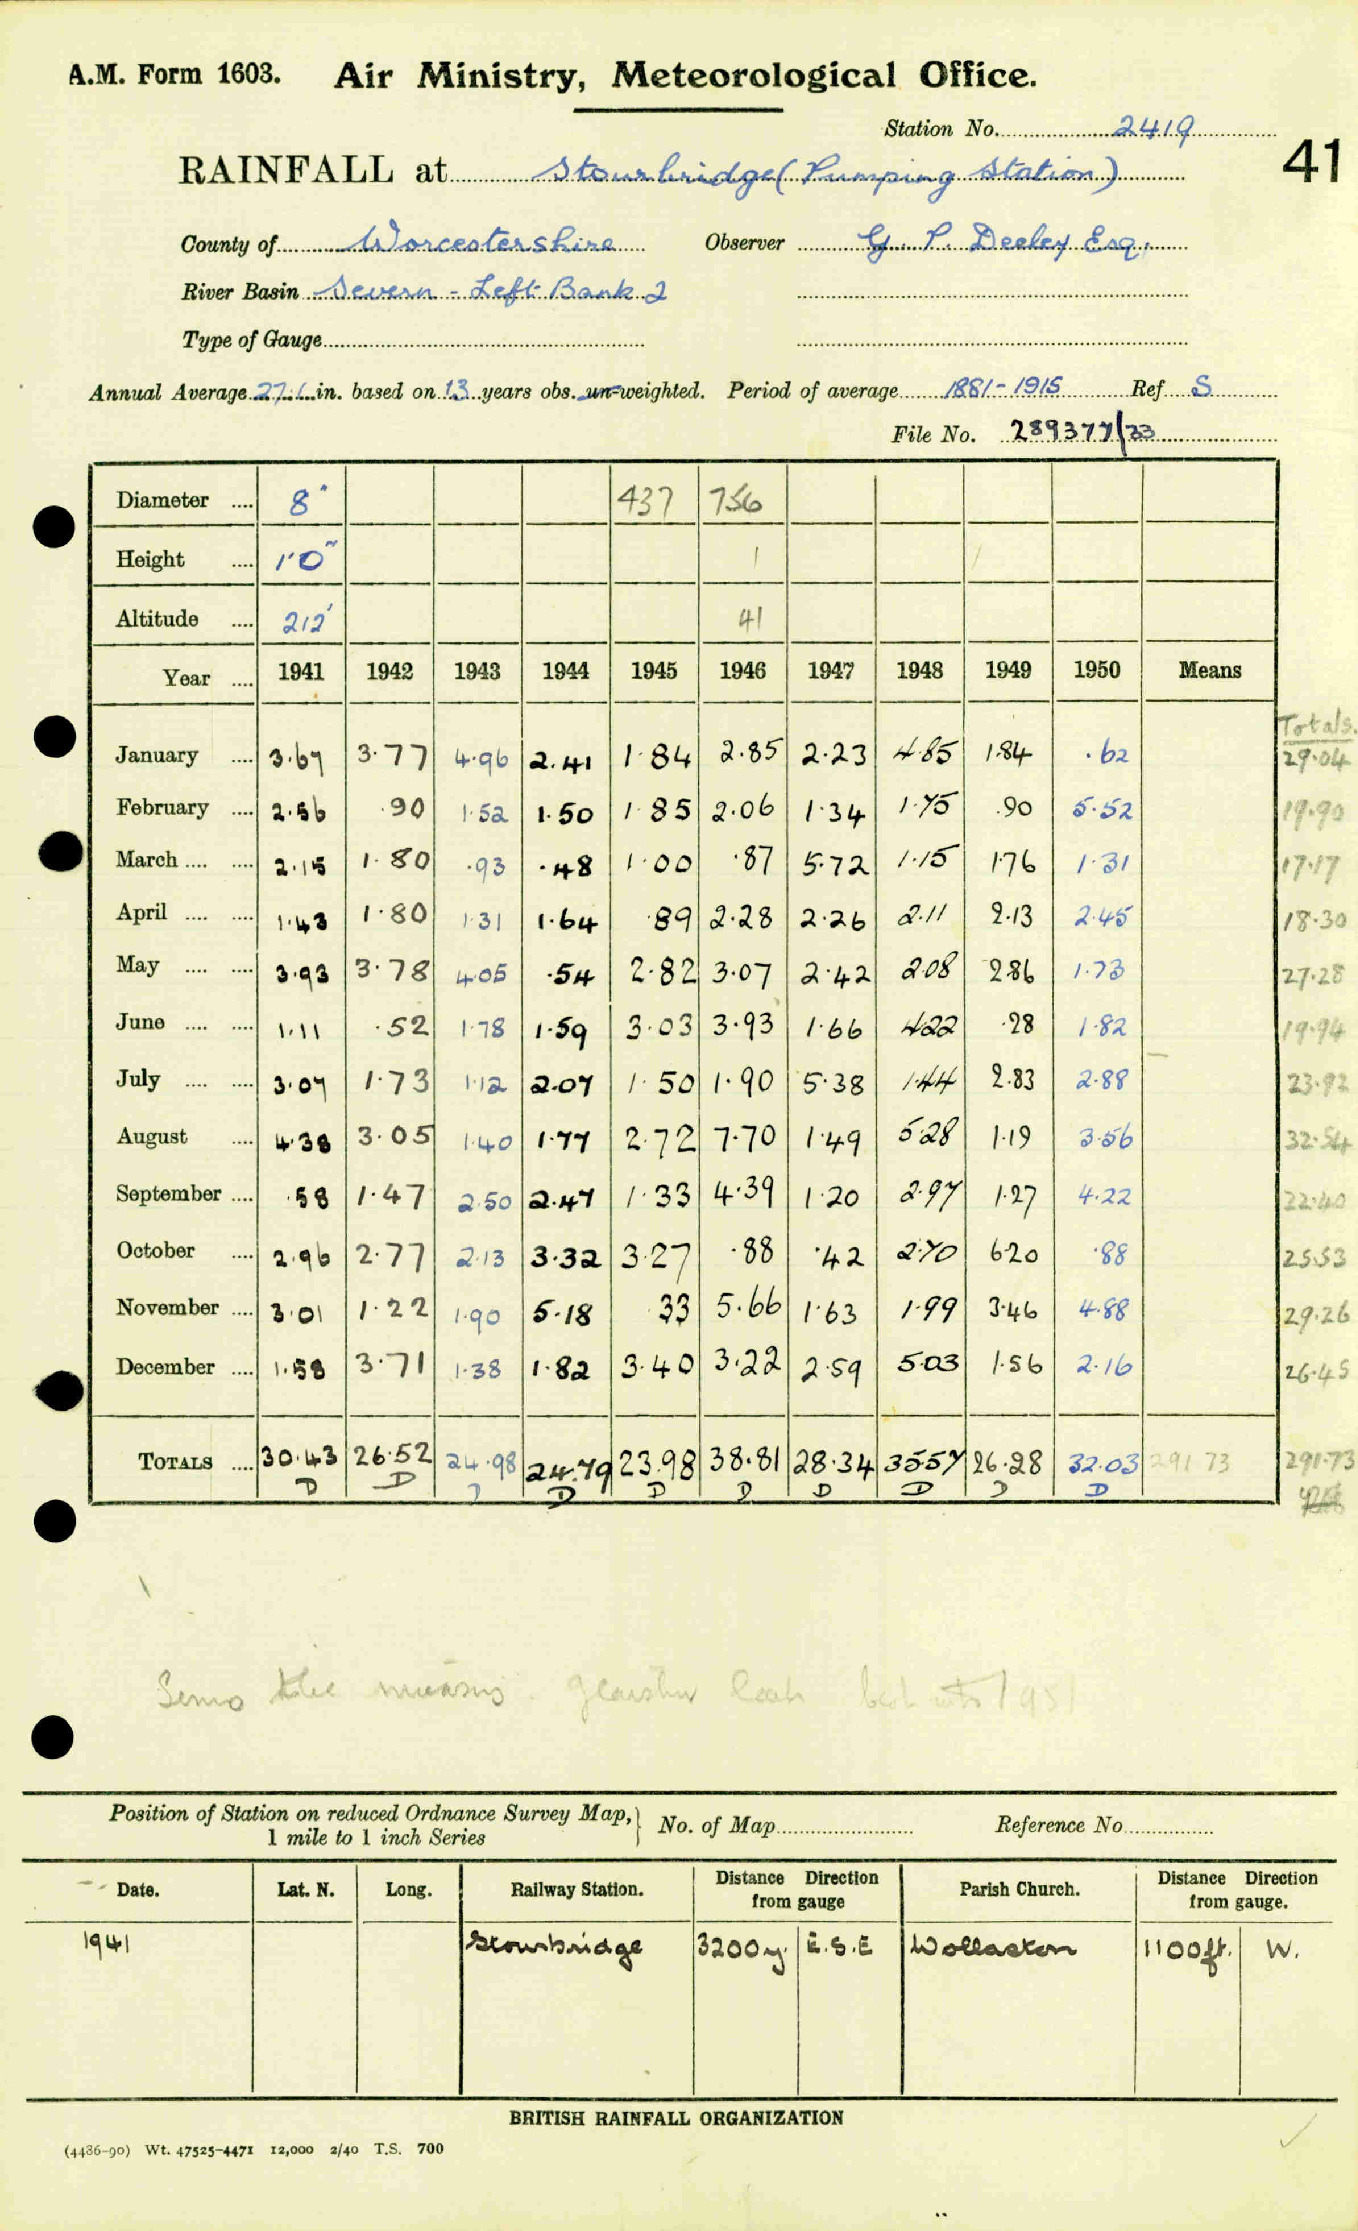 A.M. Form 1603. Air Ministry, Meteorological Office.
Station No. 2419
41
RAINFALL at Stourbridge (Pumping Station)
County of Worcestershire Observer G. P. Deeley Esq.
River Basin Severn - Left Bank 2
Type of Gauge
Annual Average 27.1 in. based on 13 years obs. un-weighted. Period of average 1881-1915 Ref S
File No. 289377/33
Diameter 8" 437 756
Height 1'0" 1
Altitude 212' 41
Year 1941 1942 1943 1944 1945 1946 1947 1948 1949 1950 Means
Totals.
January 3.67 3.77 4.96 2.41 1.84 2.85 2.23 4.85 1.84 .62 29.04
February 2.56 .90 1.52 1.50 1.85 2.06 1.34 1.75 .90 5.52 19.90
March 2.15 1.80 .93 .48 1.00 .87 5.72 1.15 1.76 1.31 17.17
April 1.43 1.80 1.31 1.64 .89 2.28 2.26 2.11 2.13 2.45 18.30
May 3.93 3.78 4.05 .54 2.82 3.07 2.42 2.08 2.86 1.73 27.28
June 1.11 .52 1.78 1.59 3.03 3.93 1.66 4.22 .28 1.82 19.94
July 3.07 1.73 1.12 2.07 1.50 1.90 5.38 1.44 2.83 2.88 23.92
August 4.38 3.05 1.40 1.77 2.72 7.70 1.49 5.28 1.19 3.56 32.54
September .58 1.47 2.50 2.47 1.33 4.39 1.20 2.97 1.27 4.22 22.40
October 2.96 2.77 2.13 3.32 3.27 .88 .42 2.70 6.20 .88 25.53
November 3.01 1.22 1.90 5.18 .33 5.66 1.63 1.99 3.46 4.88 29.26
December 1.58 3.71 1.38 1.82 3.40 3.22 2.59 5.03 1.56 2.16 26.45
TOTALS 30.43 26.52 24.98 24.79 23.98 38.81 28.34 35.57 26.28 32.03 291 73 291.73
D D D D D D D D D D
Position of Station on reduced Ordnance Survey Map, 1 mile to 1 inch Series } No. of Map Reference No.
Date. Lat. N. Long. Railway Station. Distance Direction from gauge Parish Church. Distance Direction from gauge.
1941 Stourbridge 3200y. E.S.E Wollaston 1100ft. W.
BRITISH RAINFALL ORGANIZATION
(4486-90) Wt. 47525-4471 12,000 2/40 T.S. 700